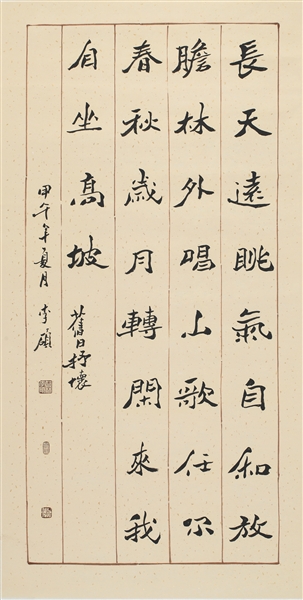 長天遠眺氣自和放
膽林外唱山歌任尔
春秋歲月轉閑來我
自坐高坡
舊日抒懷
甲午年夏月 李碩